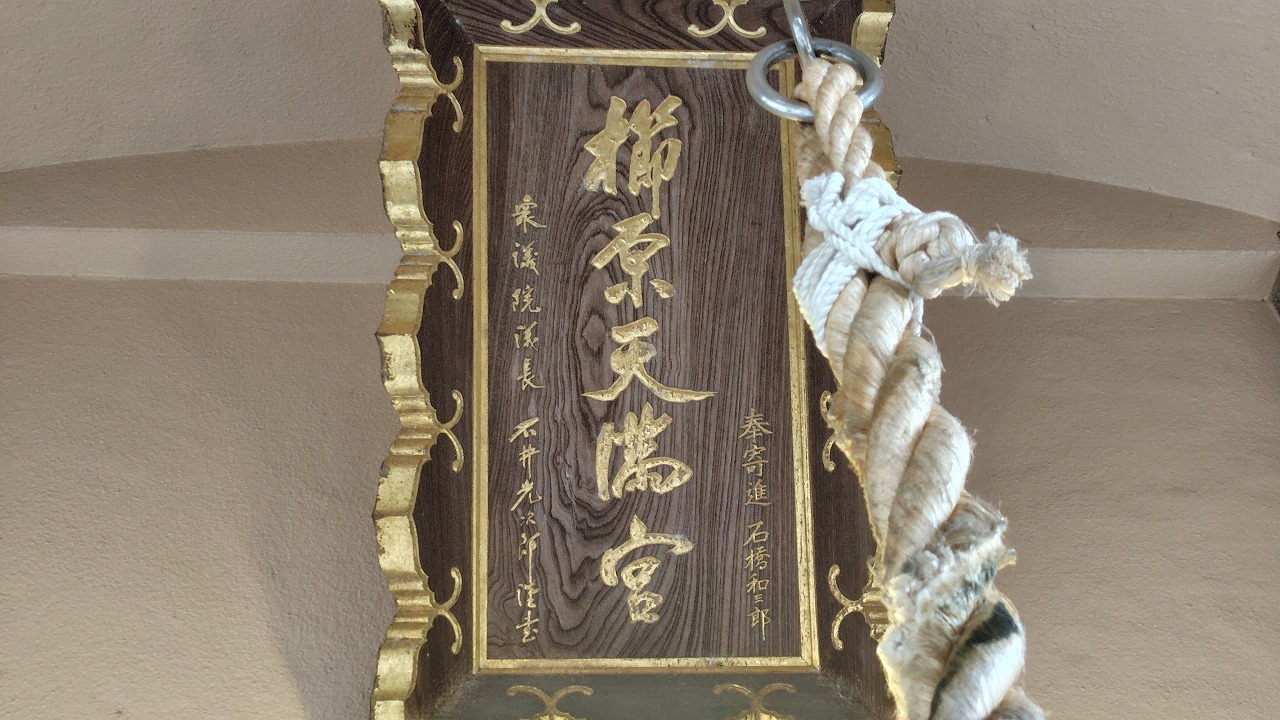 奉寄進 石橋和三郎
櫛原天満宮
衆議院議長 石井光次郎謹書